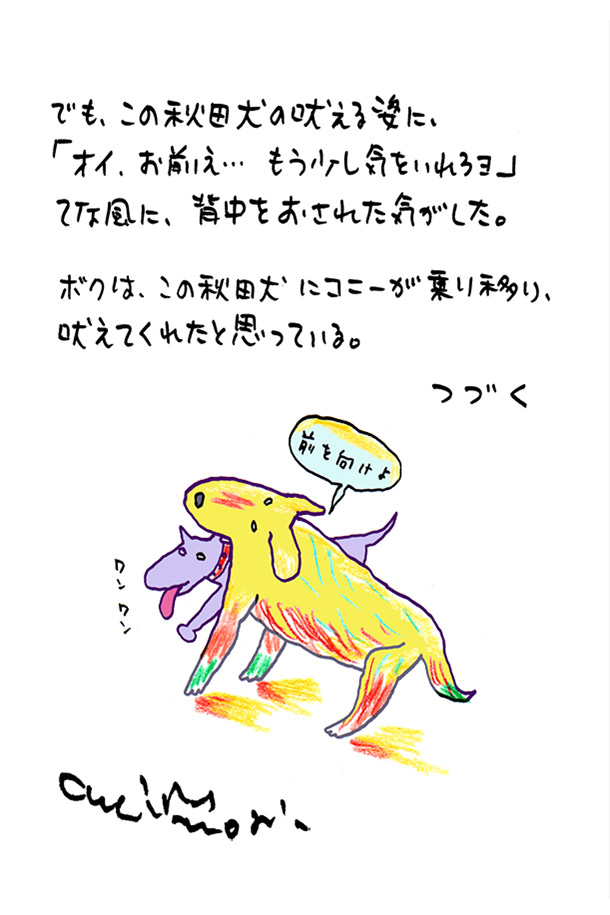 でも、この秋田犬の吠える姿に、
「オイ、お前え… もう少し気をいれろヨ」
てな風に、背中をおされた気がした。
ボクは、この秋田犬にコニーが乗り移り、
吠えてくれたと思っている。
つづく
前を向けよ
ワンワン